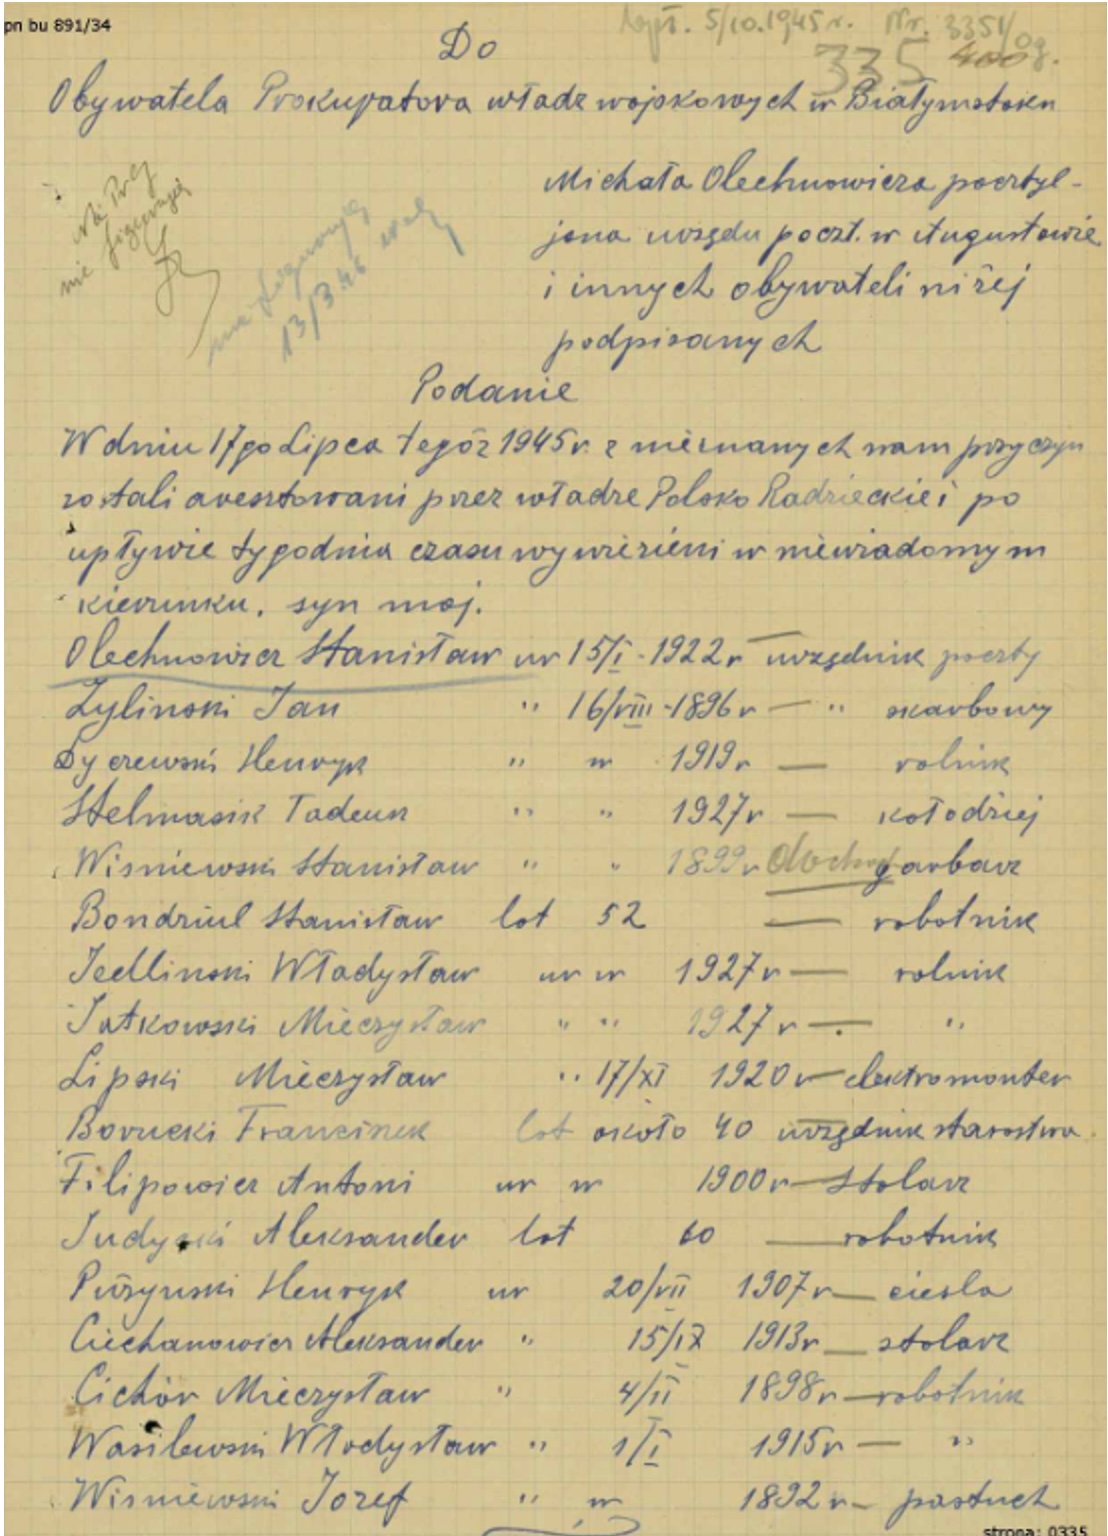 pn bu 891/34
wpł. 5/10.1945 r. Nr. 3351/og.
Do
335 400
Obywatela Prokuratora władz wojskowych w Białymstoku
Michała Olechnowicza pocztyl-
jona urzędu poczt. w Augustowie
i innych obywateli niżej
podpisanych
13/3.46
Podanie
W dniu 17go Lipca tegóż 1945r. z nieznanych nam przyczyn
zostali aresztowani przez władze Polsko Radzieckie i po
upływie tygodnia czasu wywiezieni w niewiadomym
kierunku. syn moj.
Olechnowicz Stanisław ur 15/I - 1922r — urzędnik poczty
Zylinski Jan " 16/VIII - 1896r — " skarbowy
Dyczewski Henryk " w 1919r — rolnik
Stelmasik Tadeusz " " 1927r — kołodziej
Wisniewski Stanisław " " 1899r garbarz
Bondziul Stanisław lat 52 — robotnik
Jedlinski Władysław ur w 1927r — rolnik
Jatkowski Mieczysław " " 1927r — "
Lipski Mieczysław " 17/XI 1920r — elektromonter
Borucki Franciszek lat około 40 urzędnik starostwa
Filipowicz Antoni ur w 1900r — stolarz
Judycki Aleksander lat 60 — robotnik
Pużynski Henryk ur 20/VII 1907r — ciesla
Ciechanowicz Aleksander " 15/IX 1913r — stolarz
Cichór Mieczysław " 4/II 1898r — robotnik
Wasilewski Włodysław " 1/I 1915r — "
Wisniewski Jozef " w 1892r — pastuch
strona: 0335